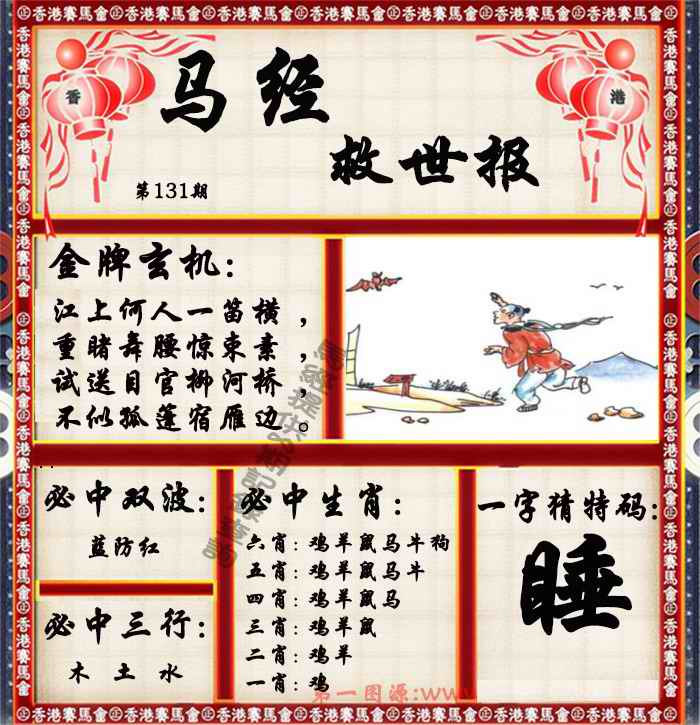 正香港賽馬會正香港賽馬會正香港賽馬會正香港賽馬會正香港賽馬會
香
港
马经
救世报
第131期
金牌玄机：
江上何人一笛横，
重睹舞腰惊束素，
试送目官柳河桥，
不似孤蓬宿雁边。
必中双波：
蓝防红
必中三行：
木 土 水
必中生肖：
六肖：鸡羊鼠马牛狗
五肖：鸡羊鼠马牛
四肖：鸡羊鼠马
三肖：鸡羊鼠
二肖：鸡羊
一肖：鸡
一字猜特码：
睡
第一图源:www